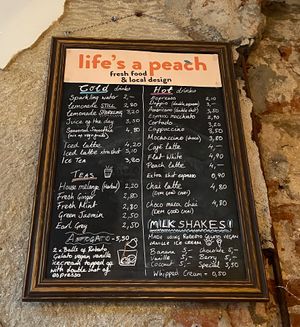 life's a peach
fresh food
& local design
Cold drinks
Sparkling water 2,-
Lemonade STILL 2,80
Lemonade SPARKLING 3,20
Juice of the day 3,50
Seasonal Smoothie 4,80
Iced latte 4,20
Iced latte extra shot 5,10
Ice Tea 3,80
TEAS
House melange (herbal) 2,20
Fresh Ginger 2,80
Fresh Mint 2,80
Green Jasmin 2,50
Earl Grey 2,50
AFFOGATO 5,50
2 x Balls of Roberto
Gelato vegan vanilla
icecream topped up
with double shot of
espresso
Hot drinks
Espresso 2,10
Doppio (double espresso) 3,-
Americano (double shot) 3,50
Espresso macchiato 2,90
Cortado 3,20
Cappuccino 3,50
Mochaccino 4,80
Café latte 4,-
Flat white 4,90
Peach latte 4,-
Extra shot espresso 0,90
Chai latte 4,80
Choco melk chai 4,80
MILKSHAKES!
MADE USING ROBERTO GELATO VEGAN
VANILLE ICE CREAM
Banana 5,-
Vanille 5,-
Coconut 5,-
Chocolate 5,-
Berry 5,-
Special 5,50
Whipped Cream = 0,50